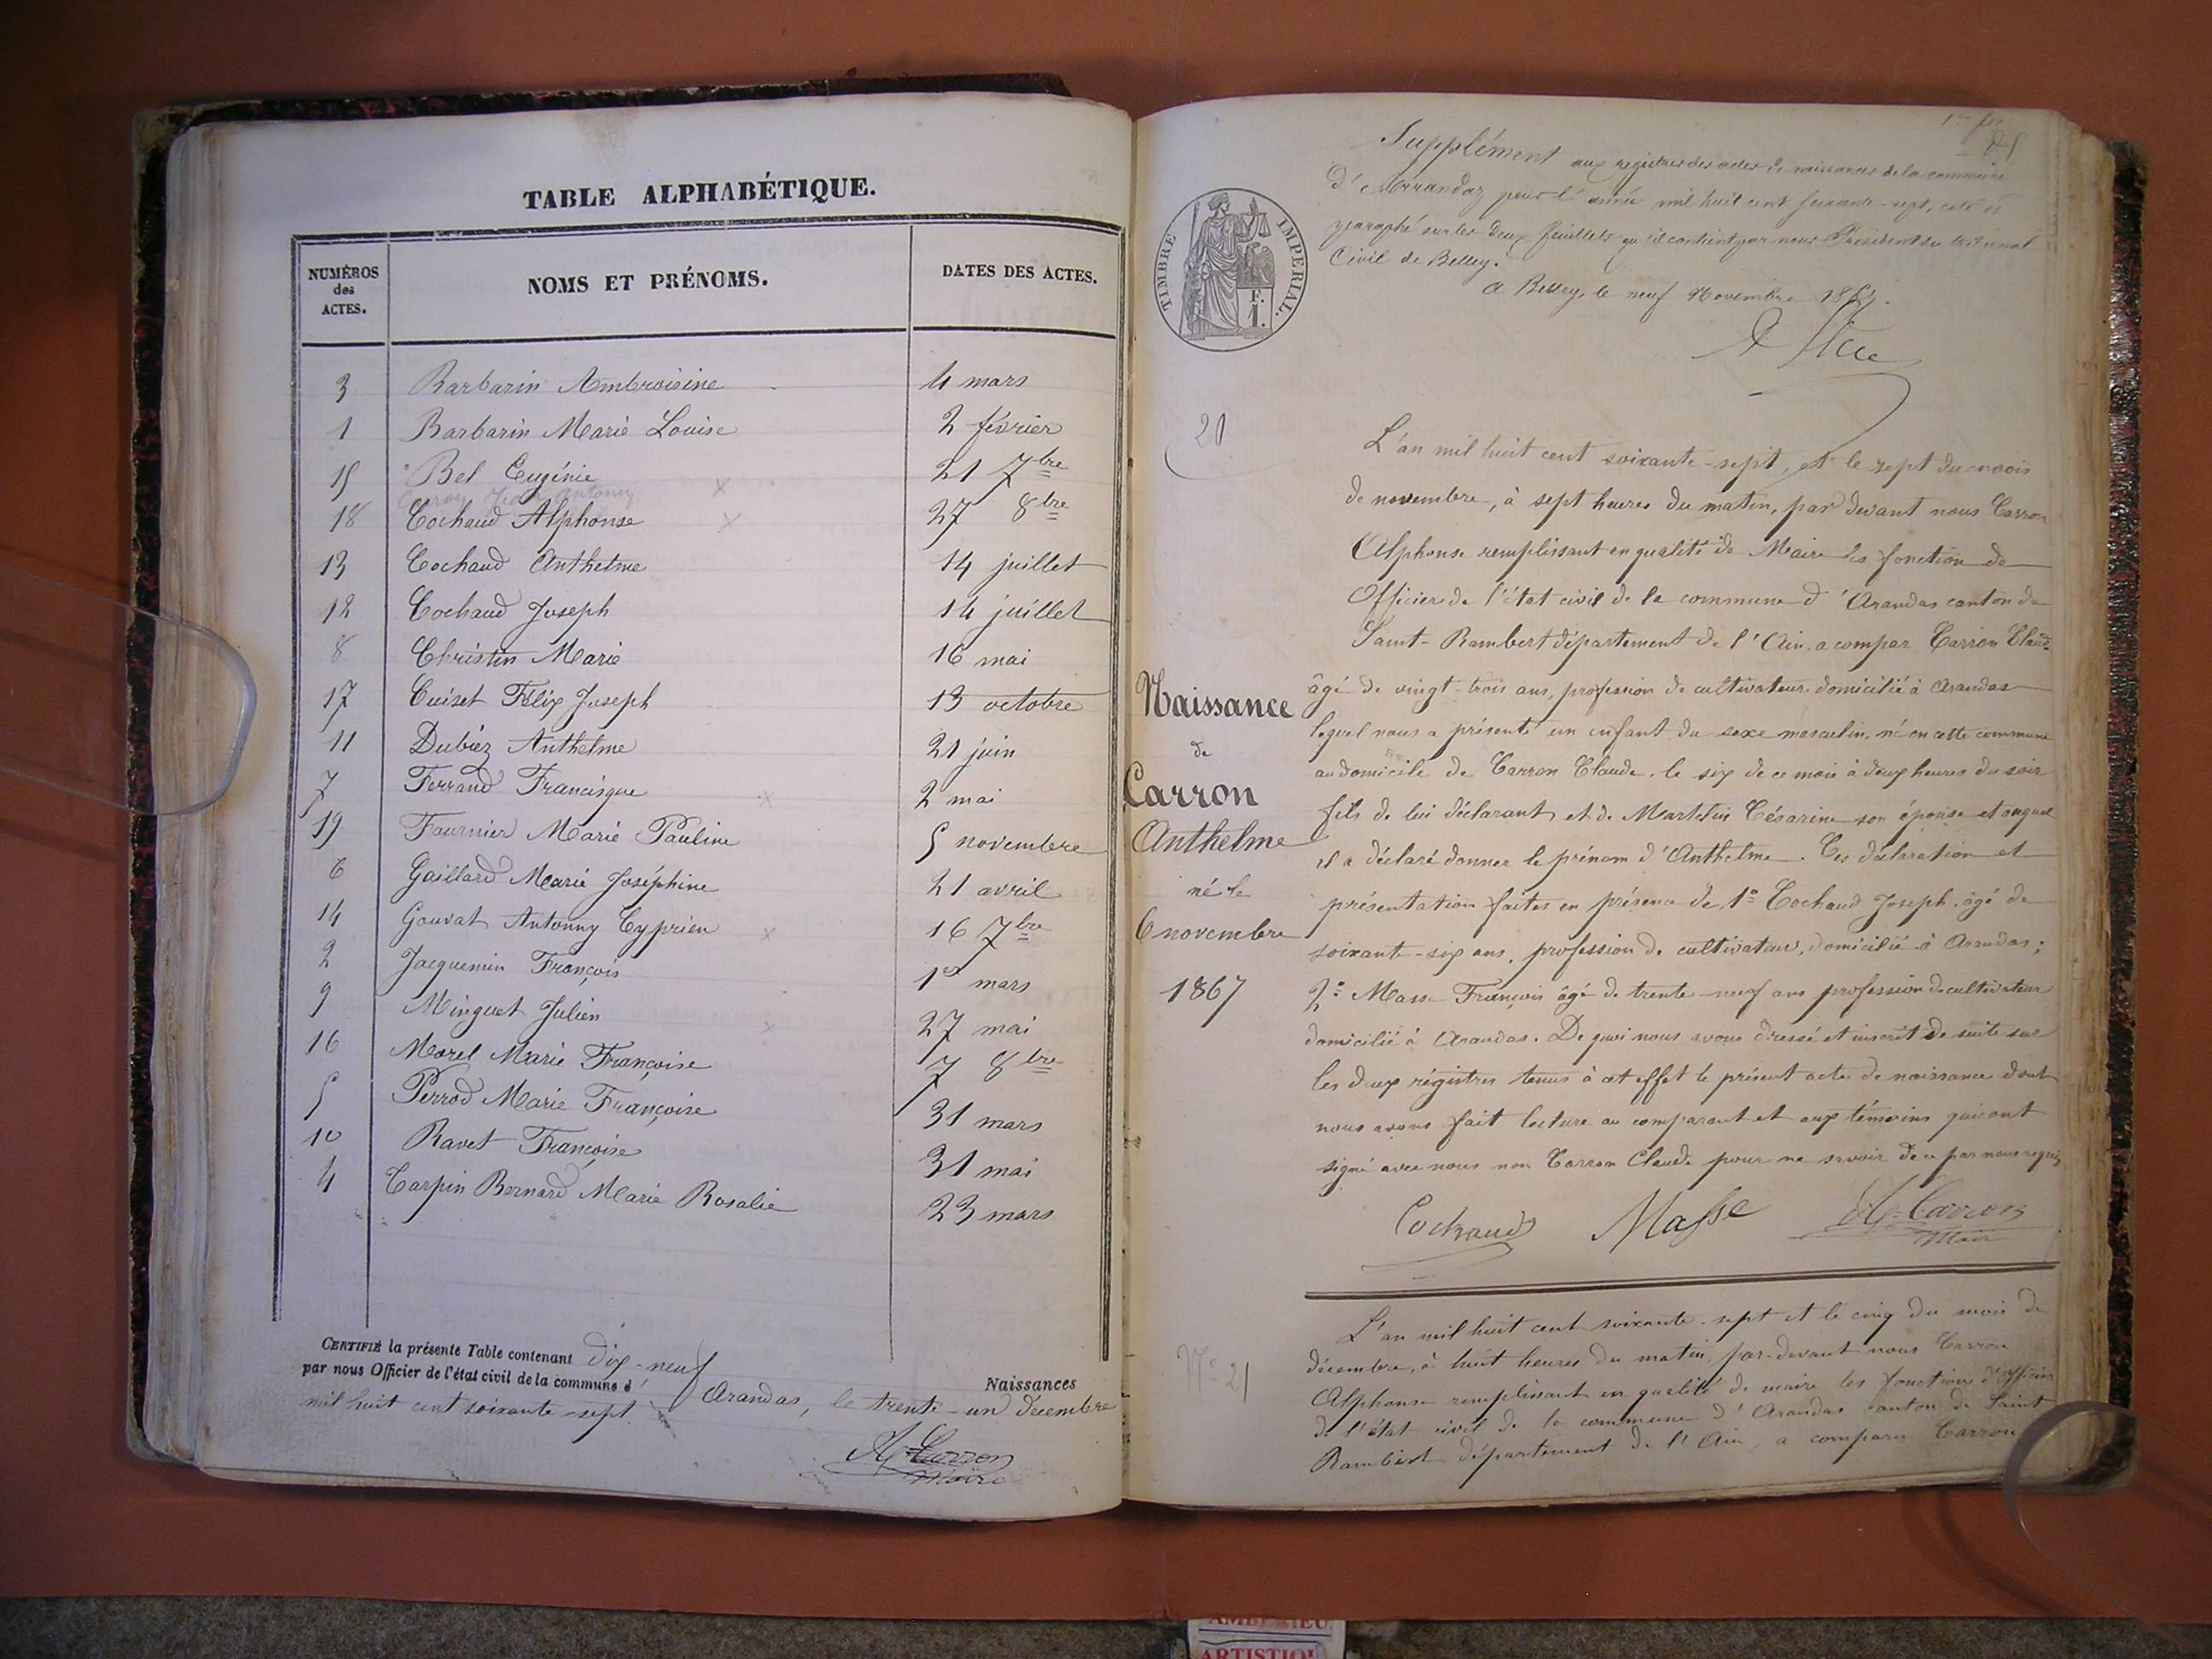 TABLE ALPHABÉTIQUE.
NUMÉROS
des
ACTES.
NOMS ET PRÉNOMS.
DATES DES ACTES.
3 Barbarin Ambroisine 4 mars
1 Barbarin Marie Louise 2 février
15 Bel Eugénie 21 7bre
18 Cochaud Alphonse 27 8bre
13 Cochaud Anthelme 14 juillet
12 Cochaud Joseph 14 juillet
8 Christin Marie 16 mai
17 Cuiset Félix Joseph 13 octobre
11 Dubiez Anthelme 21 juin
7 Ferrand Francisque 2 mai
19 Fournier Marie Pauline 5 novembre
6 Gaillard Marie Joséphine 21 avril
14 Gouvat Antonny Cyprien 16 7bre
2 Jacquemin François 1er mars
9 Minguet Julien 27 mai
16 Morel Marie Françoise 7 8bre
5 Perrod Marie Françoise 31 mars
10 Ravet Françoise 31 mai
4 Carpin Bernard Marie Rosalie 23 mars
CERTIFIÉ la présente Table contenant dix-neuf Naissances
par nous Officier de l'état civil de la commune d'Arandas, le trente-un décembre
mil huit cent soixante-sept.
A. Carron
Maire
Supplément aux registres des actes de naissances de la commune
d'Arrandaz pour l'année mil huit cent soixante-sept, coté et
paraphé sur les deux feuillets qu'il contient par nous Président du tribunal
Civil de Belley.
A Belley, le neuf Novembre 1867.
TIMBRE IMPERIAL.
F.
1.
20
L'an mil huit cent soixante-sept, et le sept du mois
de novembre, à sept heures du matin, par devant nous Carron
Alphonse remplissant en qualité de Maire les fonction de
Officier de l'état civil de la commune d'Arandas canton de
Saint-Rambert département de l'Ain, a compar Carron Claude
âgé de vingt-trois ans, profession de cultivateur domicilié à Arandas
lequel nous a présenté un enfant du sexe masculin, né en cette commune
au domicile de Carron Claude, le six de ce mois à deux heures du soir
fils de lui déclarant et de Martelin Césarine son épouse et auquel
il a déclaré donner le prénom d'Anthelme. Ces déclaration et
présentation faites en présence de 1° Cochaud Joseph, âgé de
soixante-six ans, profession de cultivateur, domicilié à Arandas;
2° Masse François âgé de trente-neuf ans profession de cultivateur
domicilié à Arandas. De quoi nous avons dressé et inscrit de suite sur
les deux régistres tenus à cet effet le présent acte de naissance dont
nous avons fait lecture au comparant et aux témoins qui ont
signé avec nous non Carron Claude pour ne savoir de ce par nous requis
Naissance
de
Carron
Anthelme
né le
6 novembre
1867
Cochaud Masse A. Carron
Maire
N° 21
L'an mil huit cent soixante-sept et le cinq du mois de
décembre, à huit heures du matin, par-devant nous Carron
Alphonse remplissant en qualité de maire les fonctions d'officier
de l'état civil de la commune d'Arandas canton de Saint
Rambert département de l'Ain, a comparu Carron
ARTISTIQU